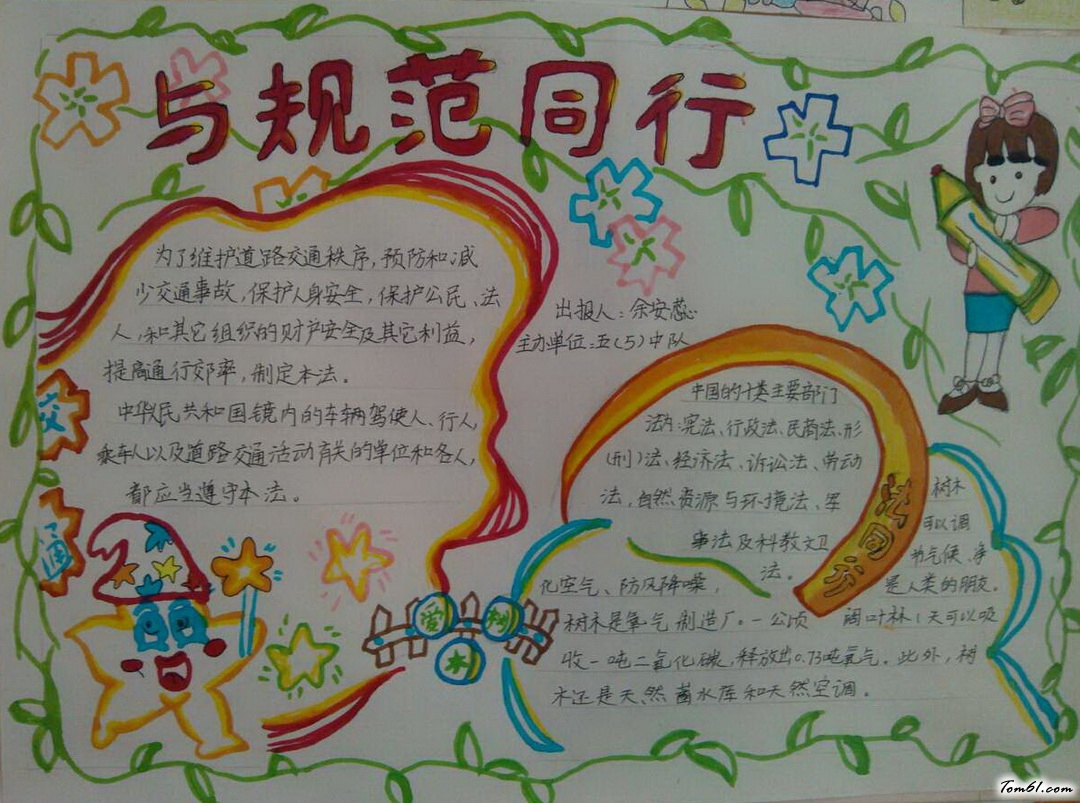 与规范同行
为了维护道路交通秩序，预防和减
少交通事故，保护人身安全，保护公民、法
人，和其它组织的财产安全及其它利益，
提高通行效率，制定本法。
中华民共和国镜内的车辆驾使人、行人，
乘车人以及道路交通活动有关的单位和各人，
都应当遵守本法。
交
通
出报人：余安蕊
主办单位：五(5)中队
中国的十类主要部门
法为：宪法、行政法、民商法、形
(刑)法、经济法、诉讼法、劳动
法，自然资源与环境法、军
事法及科教文卫
法。
法同行
爱树木
树木
可以调
节气候、净
化空气、防风降噪，是人类的朋友。
树木是氧气制造厂。一公顷阔叶林1天可以吸
收一吨二氧化碳，释放出0.73吨氧气。此外，树
木还是天然蓄水库和天然空调。
Tom61.com